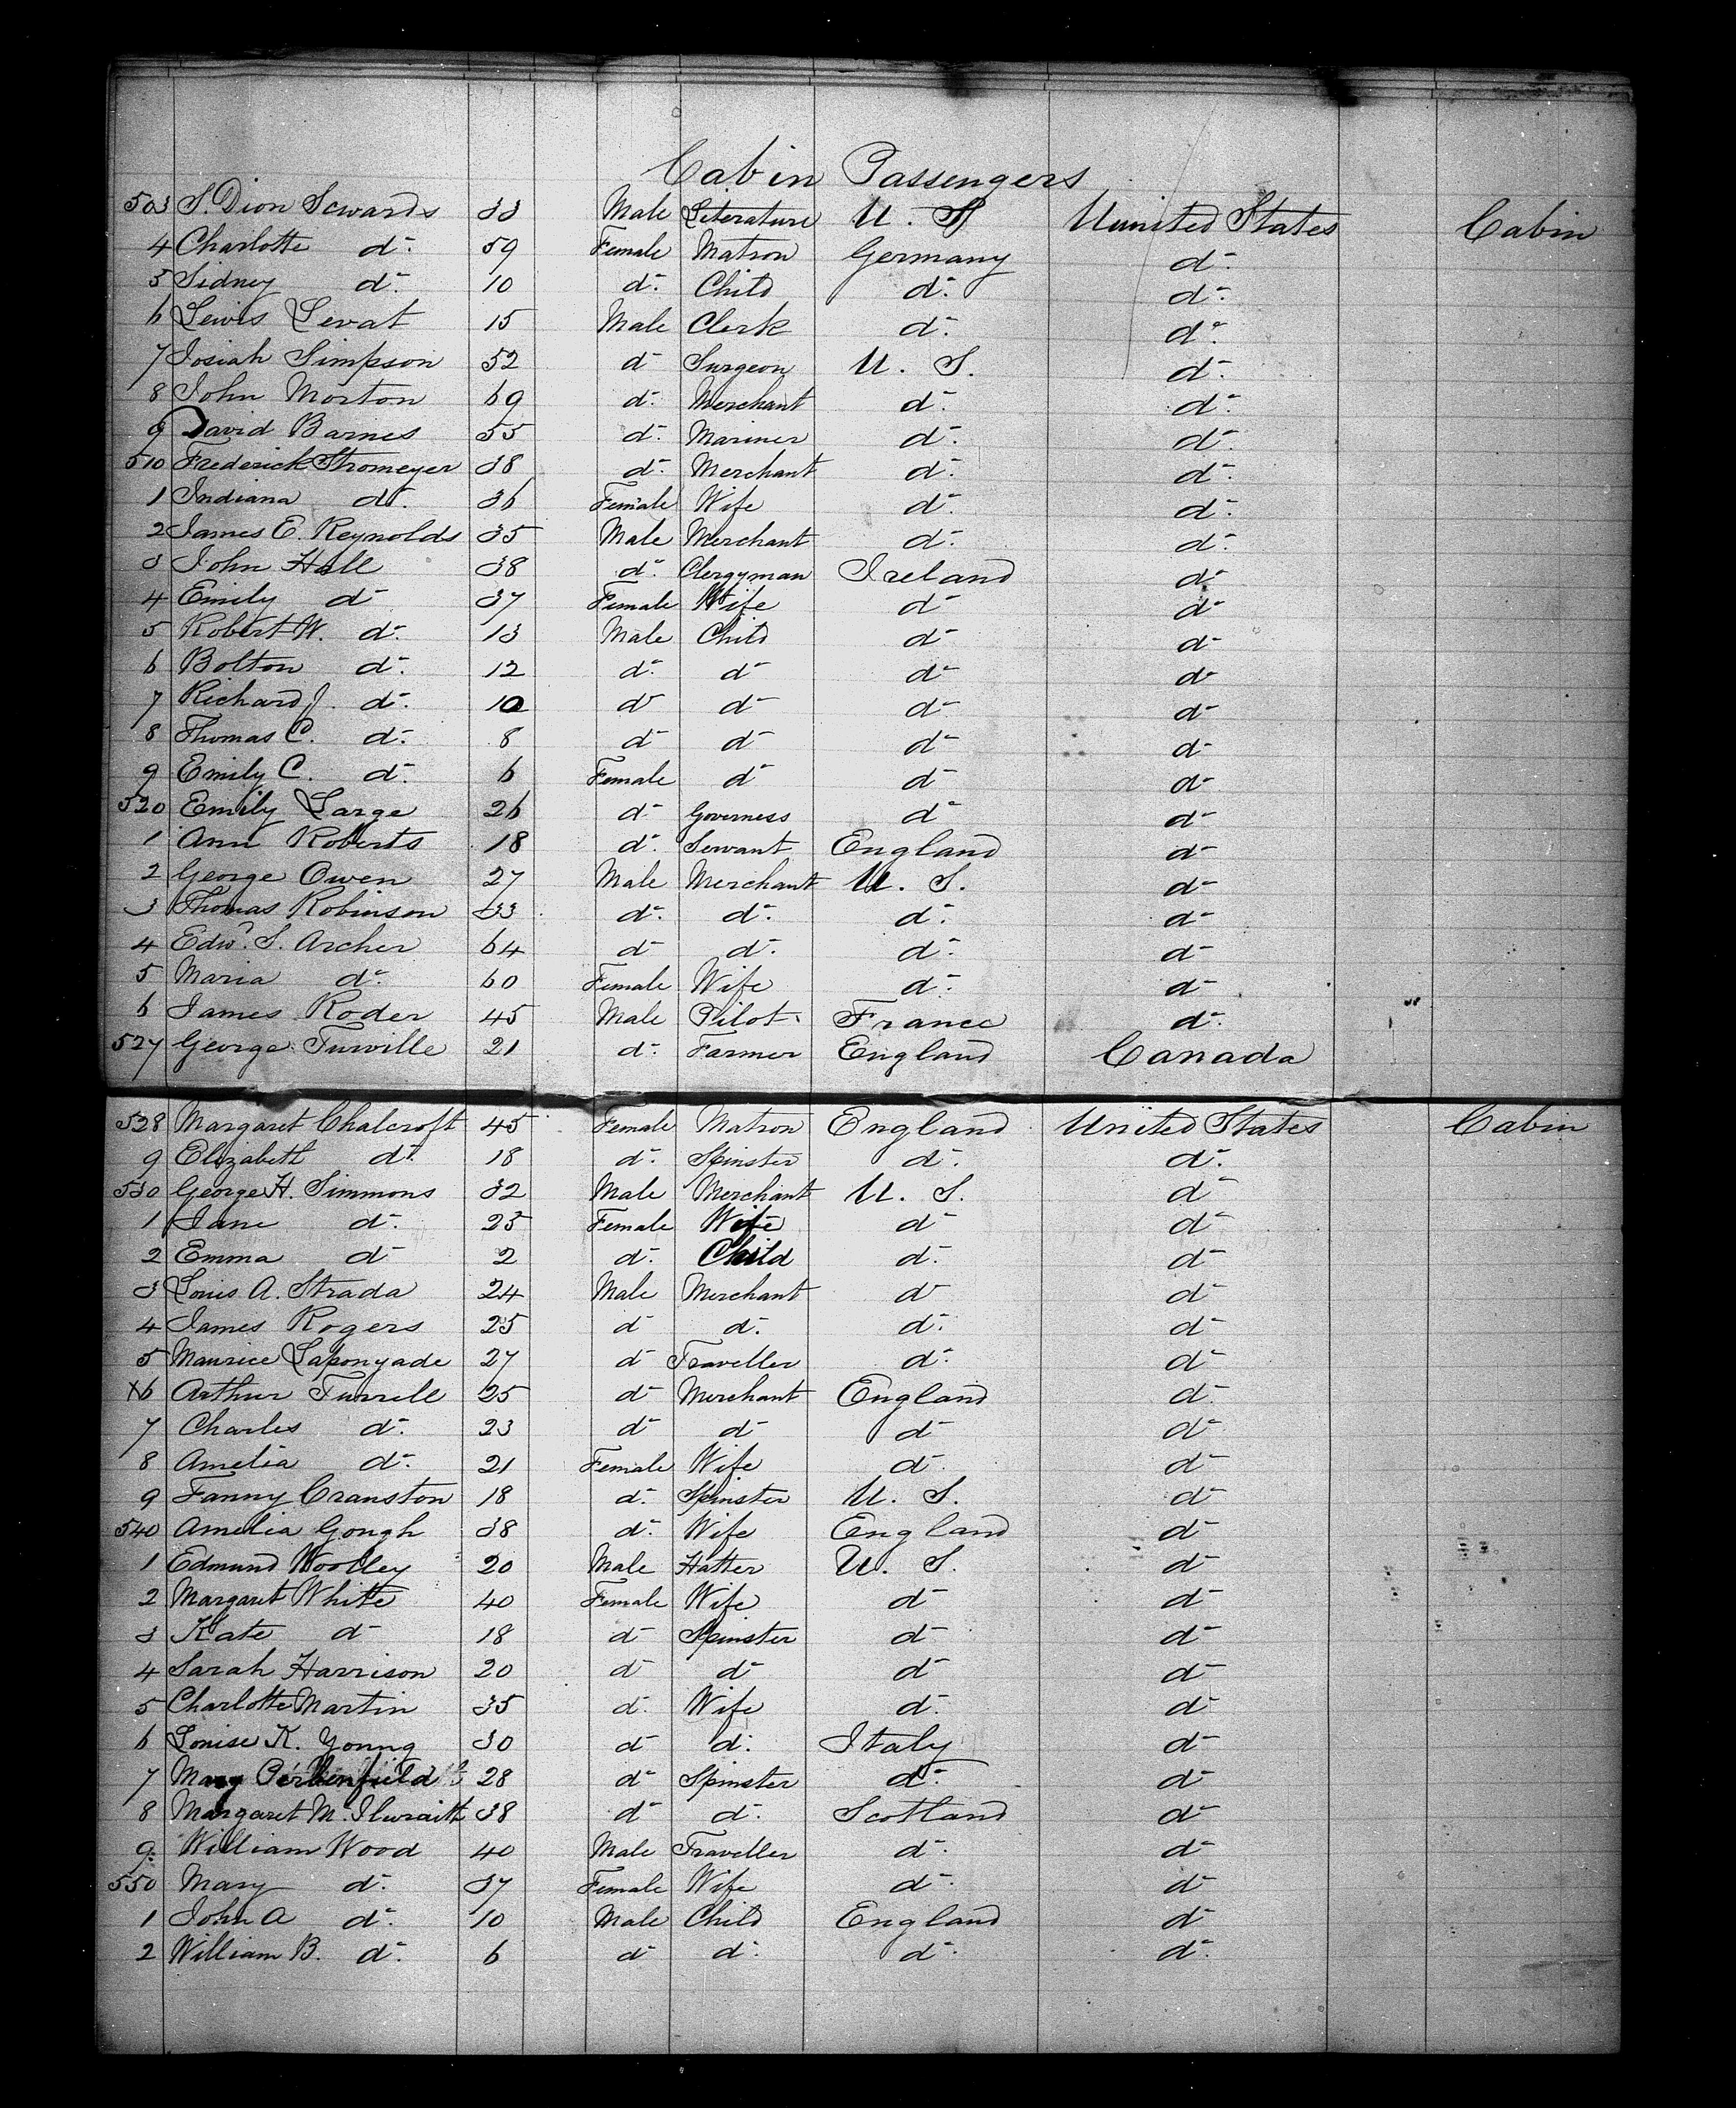 Cabin Passengers
503 S. Dion Sewards 33 Male Literature U. S Uunited States Cabin
4 Charlotte do. 59 Female Matron Germany do.
5 Sidney do. 10 do. Child do. do.
6 Lewis Levat 15 Male Clerk do. do.
7 Josiah Simpson 52 do Surgeon U. S. do.
8 John Morton 69 do. Merchant do. do.
9 David Barnes 55 do. Mariner do. do.
510 Frederick Stromeyer 38 do. Merchant do. do.
1 Indiana do. 36 Female Wife do. do.
2 James E. Reynolds 35 Male Merchant do. do.
3 John Hall 38 do. Clergyman Ireland do
4 Emily do 37 Female Wife do do
5 Robert W. do. 13 Male Child do do
6 Bolton do. 12 do. do do do
7 Richard J. do. 10 do do do do
8 Thomas C. do. 8 do do do do
9 Emily C. do. 6 Female do do do
520 Emily Large 26 do Governess do do
1 Ann Roberts 18 do. Servant England do
2 George Owen 27 Male Merchant U. S. do
3 Thomas Robinson 33 do. do. do. do
4 Edwd. S. Archer 64 do do. do. do
5 Maria do. 60 Female Wife do. do
6 James Roder 45 Male Pilot France do.
527 George Turville 21 do. Farmer England Canada
528 Margaret Chalcroft 45 Female Matron England United States Cabin
9 Elizabeth do. 18 do. Spinster do. do.
530 George H. Simmons 32 Male Merchant U. S. do
1 Jane do. 25 Female Wife do do
2 Emma do 2 do. Child do. do
3 Louis A. Strada 24 Male Merchant do do
4 James Rogers 25 do do. do. do
5 Maurice Laponyade 27 do Traveller do. do
X6 Arthur Turrell 25 do Merchant England do.
7 Charles do. 23 do do do do
8 Amelia do. 21 Female Wife do. do
9 Fanny Cranston 18 do. Spinster U. S. do
540 Amelia Gough 38 do. Wife England do
1 Edmund Woolley 20 Male Hatter U. S. do
2 Margaret White 40 Female Wife do do
3 Kate do 18 do Spinster do do
4 Sarah Harrison 20 do do do do
5 Charlotte Martin 35 do. Wife do. do
6 Louise K. Young 30 do do. Italy do
7 Mary 28 do Spinster do. do
8 Margaret Mc. Ilwraith 38 do do. Scotland do
9. William Wood 40 Male Traveller do. do
550 Mary do. 37 Female Wife do. do
1 John A do. 10 Male Child England do
2 William B. do. 6 do do. do. do.